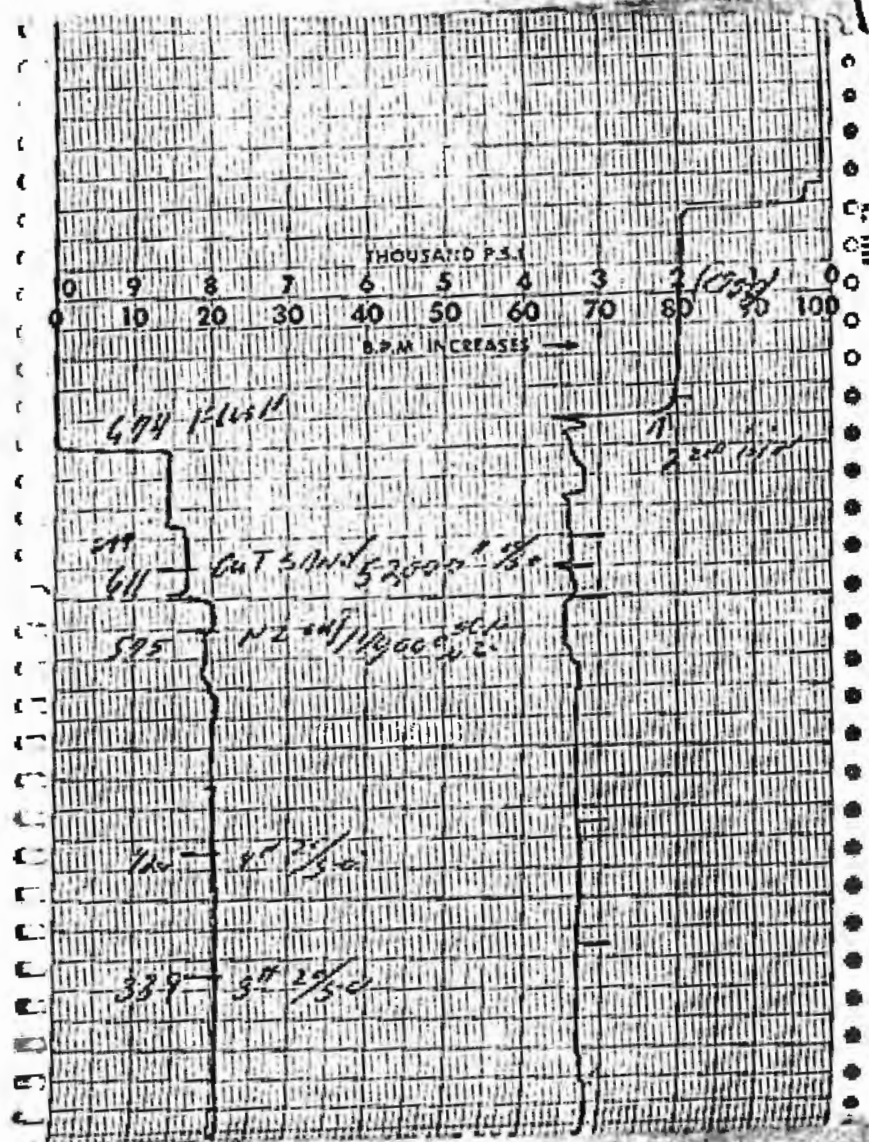 THOUSAND P.S.I.
10 9 8 7 6 5 4 3 2 1 0
0 10 20 30 40 50 60 70 80 90 100
B.P.M. INCREASES →
674 Flush
611 CUT SAND/52,000# 20/50
575 N2 CUT/119,000 SCF N2
4# 20/50
339 3# 20/50